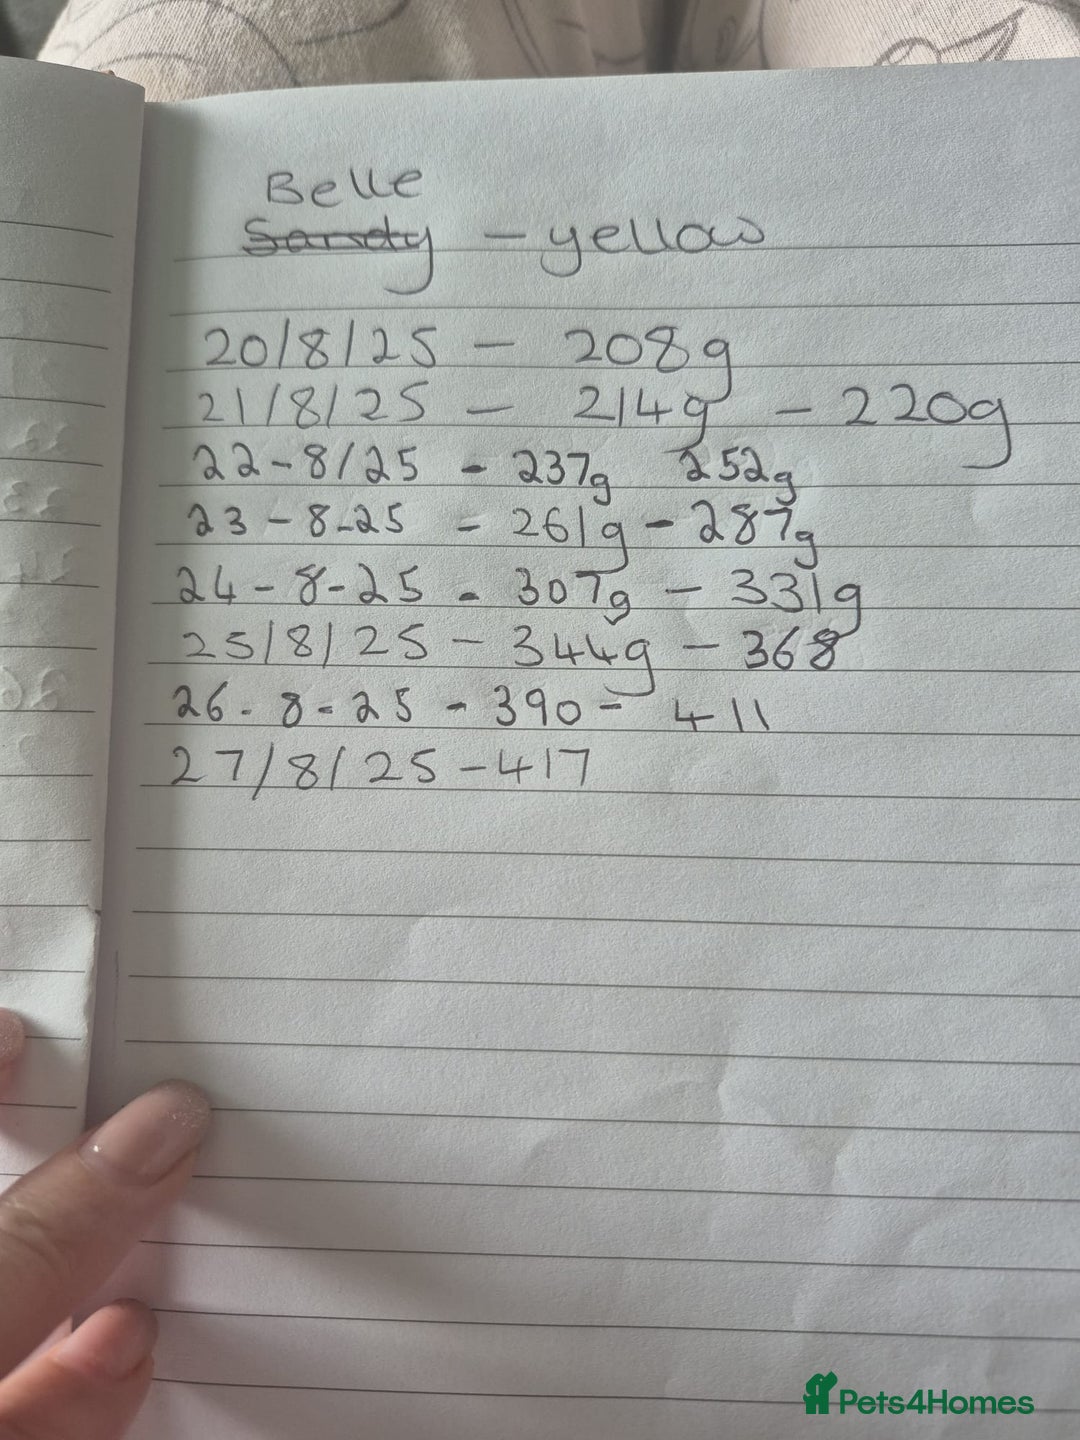 Belle
Sandy - yellow
20/8/25 - 208g
21/8/25 - 214g - 220g
22-8/25 - 237g 252g
23-8-25 - 261g - 287g
24-8-25 - 307g - 331g
25/8/25 - 344g - 368
26-8-25 - 390 - 411
27/8/25 - 417
Pets4Homes